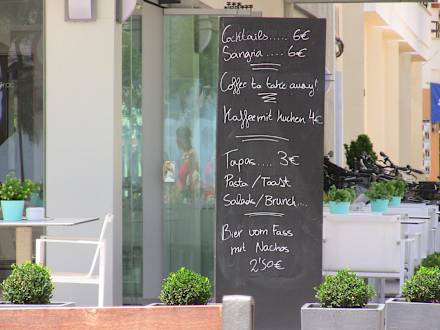 Cocktails..... 6€
Sangria..... 6€
Coffee to take away!
Kaffee mit Kuchen 4€
Tapas.... 3€
Pasta/Toast
Salads/Brunch...
Bier vom Fass
mit Nachos
2'50€